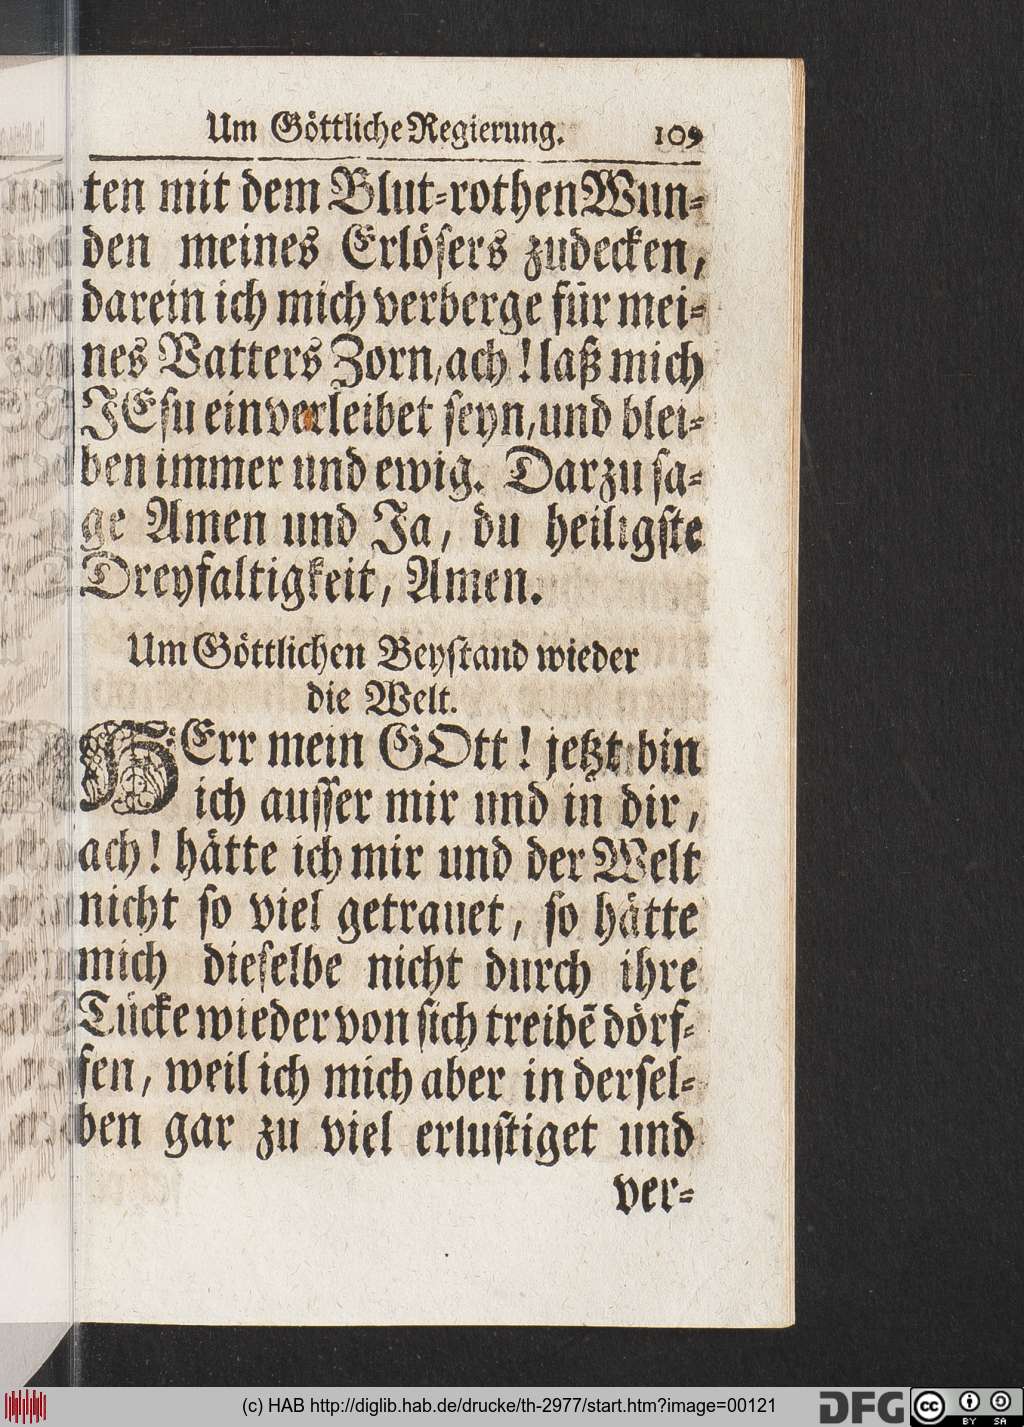 Um Göttliche Regierung. 109
ten mit dem Blut-rothen Wun-
den meines Erlösers zudecken,
darein ich mich verberge für mei-
nes Vatters Zorn, ach! laß mich
JEsu einverleibet seyn, und blei-
ben immer und ewig. Darzu sa-
ge Amen und Ja, du heiligste
Dreyfaltigkeit, Amen.
Um Göttlichen Beystand wieder
die Welt.
HErr mein GOtt! jetzt bin
ich ausser mir und in dir,
ach! hätte ich mir und der Welt
nicht so viel getrauet, so hätte
mich dieselbe nicht durch ihre
Tücke wieder von sich treibē dörf-
fen, weil ich mich aber in dersel-
ben gar zu viel erlustiget und
ver-
(c) HAB http://diglib.hab.de/drucke/th-2977/start.htm?image=00121
DFG
cc
BY SA